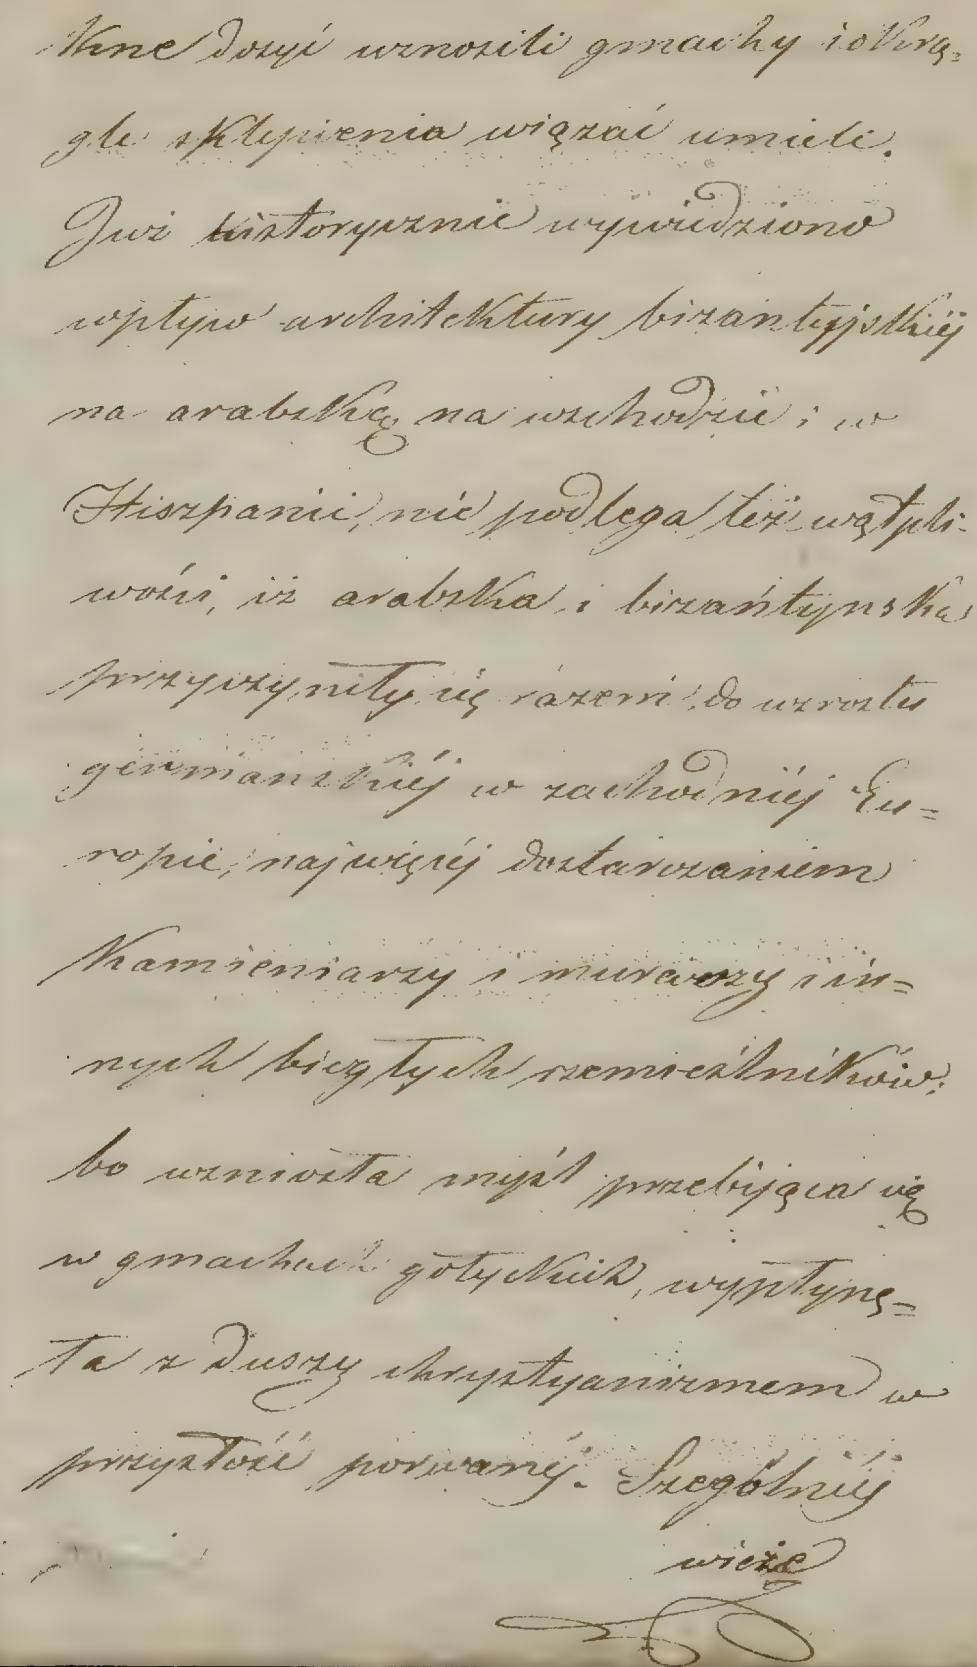 kne dosyć wznosili gmachy i okrą=
głe sklepienia wiązać umieli.
Już historycznie wywiedziono
wpływ architektury bizantyjskiéj
na arabską na wschodzie i w
Hiszpanii, nie podlega też wątpli-
wości, iż arabska i bizantynska
przyczyniły się razem do wzrostu
germanskiéj w zachodniéj Eu=
ropie, najwięcéj dostarczaniem
Kamieniarzy i murarzy i in=
nych biegłych rzemieślników;
bo wzniosła myśl przebijąca się
w gmachach gotyckich, wypłynę=
ła z duszy chrystyanizmem w
przyszłość porwanéj. Szególniéj
wieże